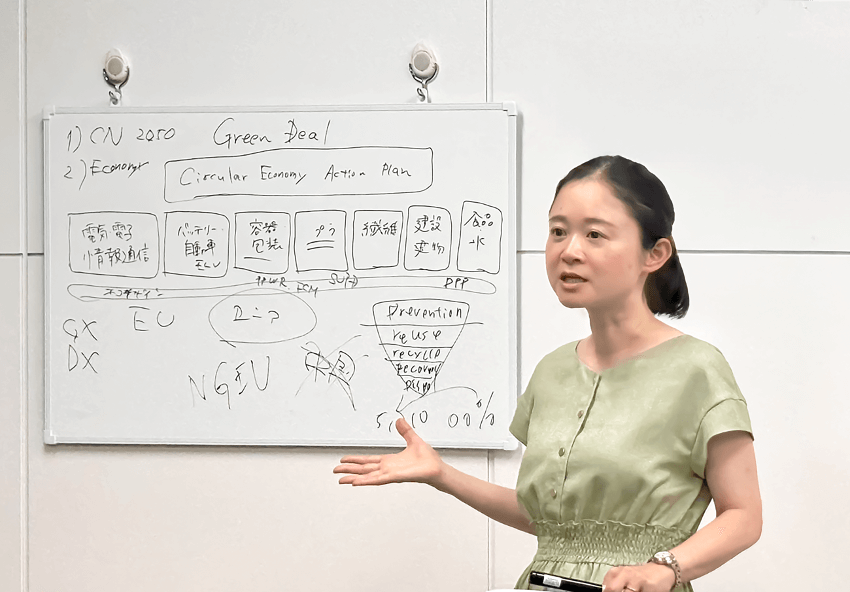 1) CN 2050 Green Deal
2) Economy
Circular Economy Action Plan
電気電子
情報通信
バッテリー
自動車
ELV
容器
包装
プラ
繊維
建設
建物
食品
水
エコデザイン
DPP
GX
DX
EU
NGEU
Prevention
reuse
recycle
Recovery